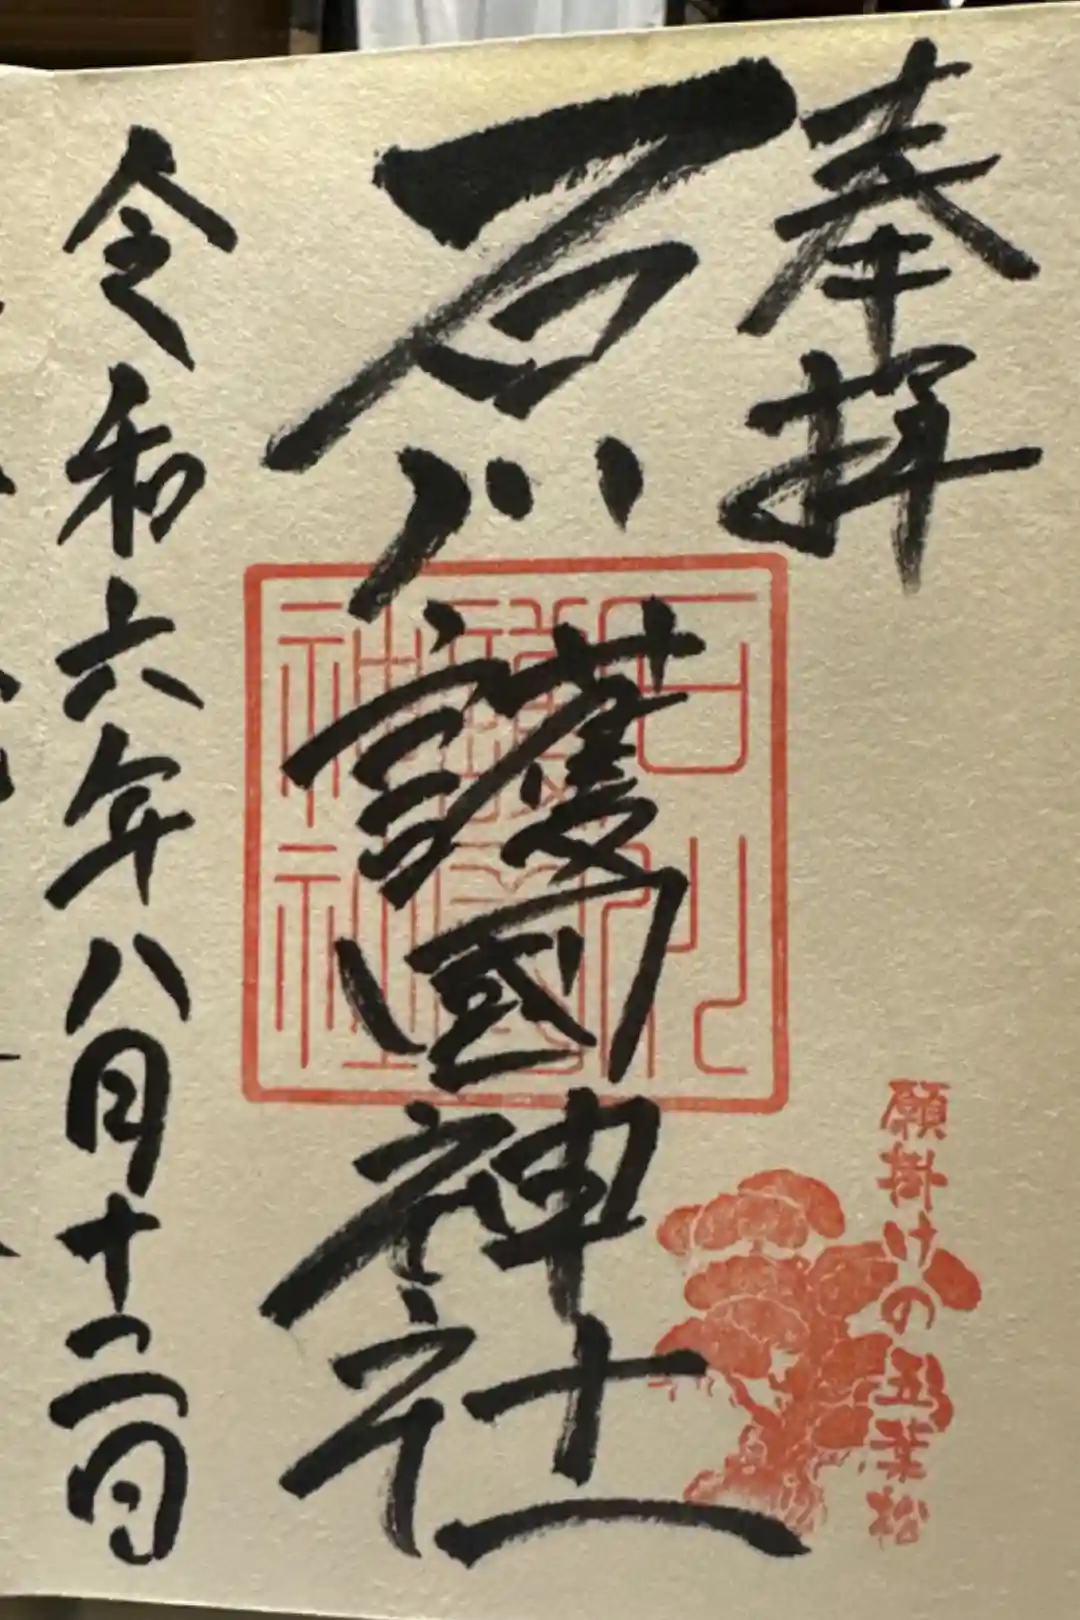 奉拝
石川護國神社
石川
護國
神社
願掛けの五葉松
令和六年八月十二日